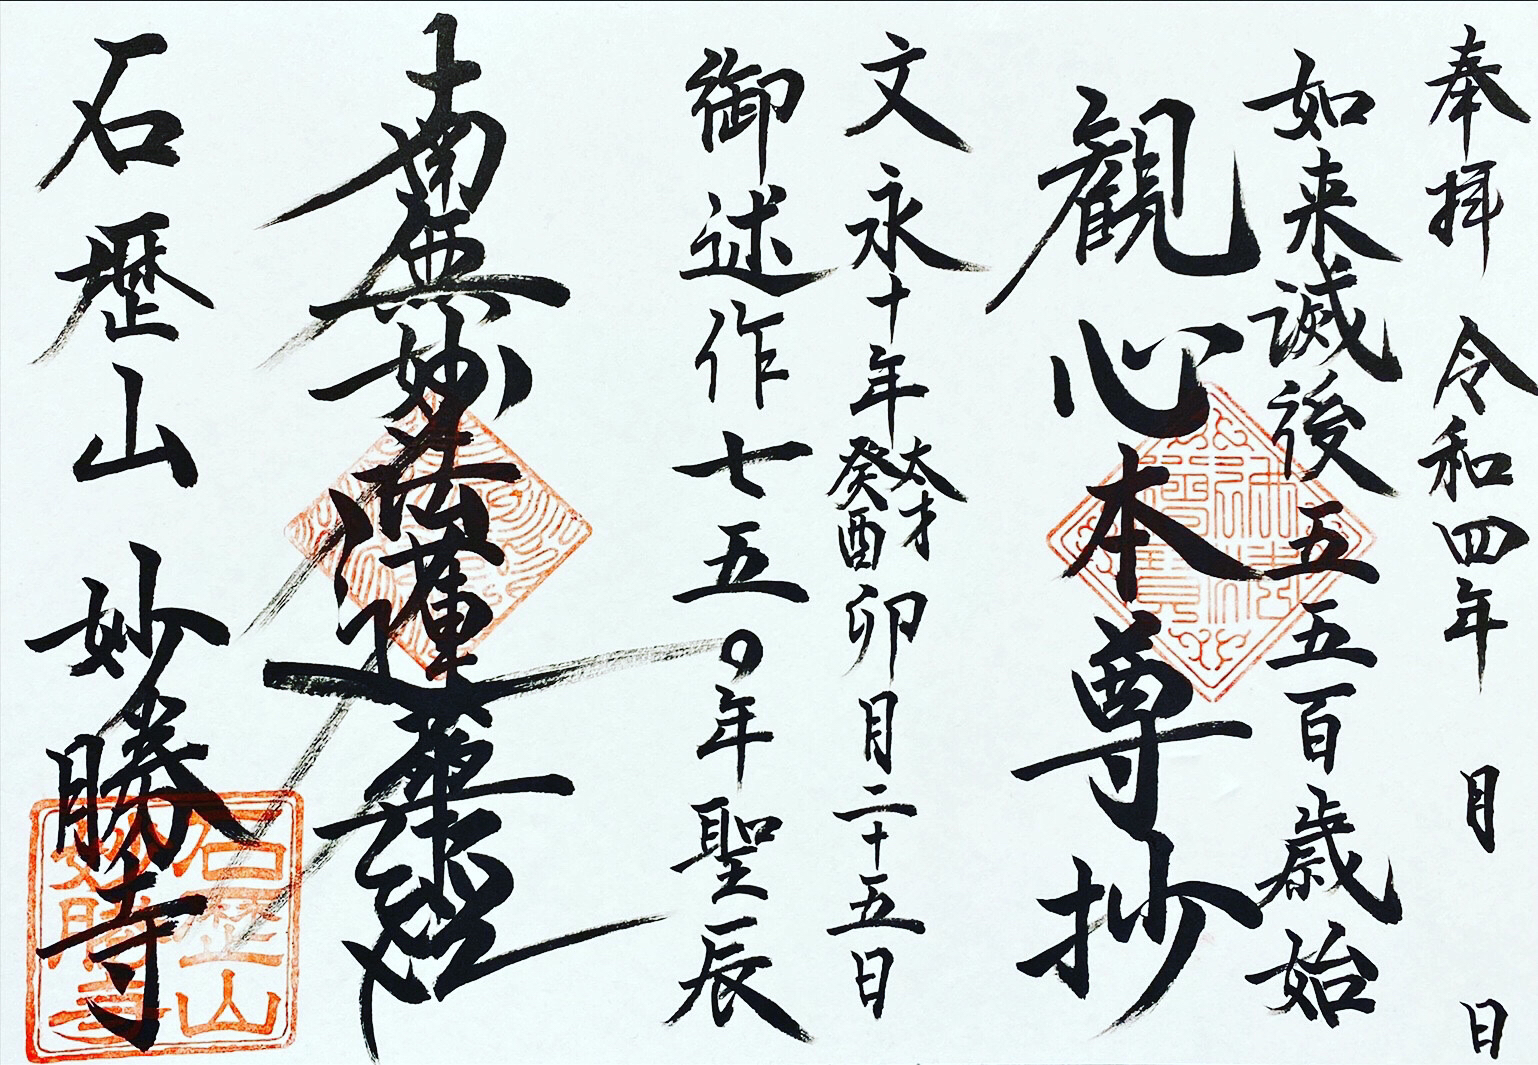 奉拝 令和四年 月 日
如来滅後五五百歳始
観心本尊抄
文永十年太才癸酉卯月二十五日
御述作七五〇年聖辰
南無妙法蓮華経
石歴山 妙勝寺
石歴山
妙勝寺